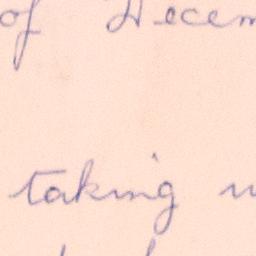 of Decem
taking